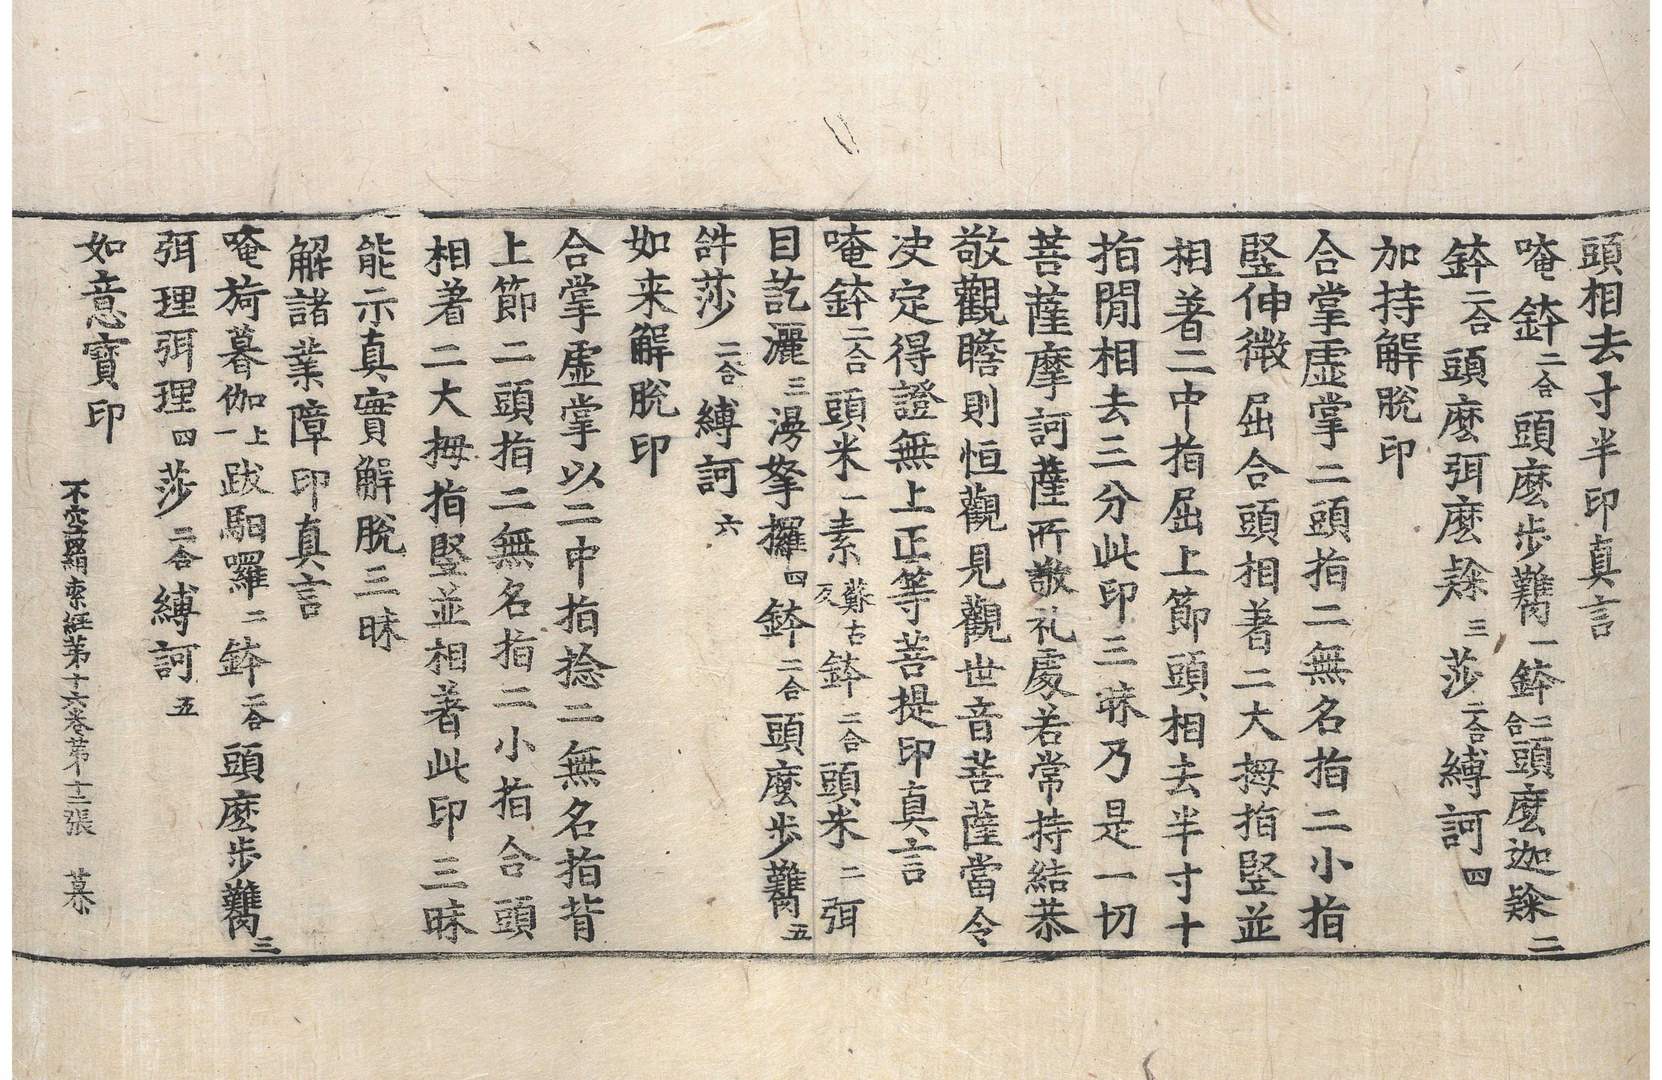 頭相去寸半印真言
唵鉢二合頭麼步難一鉢二合頭麼迦㘑二
鉢二合頭麼弭麼㘑三莎二合縛訶四
加持解脫印
合掌虛掌二頭指二無名指二小指
竪伸微屈合頭相著二大拇指竪並
相著二中指屈上節頭相去半寸十
指閒相去三分此印三昧乃是一切
菩薩摩訶薩所敬礼處若常持結恭
敬觀瞻則恒觀見觀世音菩薩當令
决定得證無上正等菩提印真言
唵鉢二合頭米一素蘇古反鉢二合頭米二弭
目訖灑三澇拏攞四鉢二合頭麼步難五
訡莎二合縛訶六
如来解脫印
合掌虛掌以二中指捻二無名指背
上節二頭指二無名指二小指合頭
相著二大拇指竪並相著此印三昧
能示真實解脫三昧
解諸業障印真言
唵旖暮伽上一跋馹囉二鉢二合頭麼步難三
弭理弭理四莎二合縛訶五
如意寶印
不空羂索經第十六卷第十二張 慕